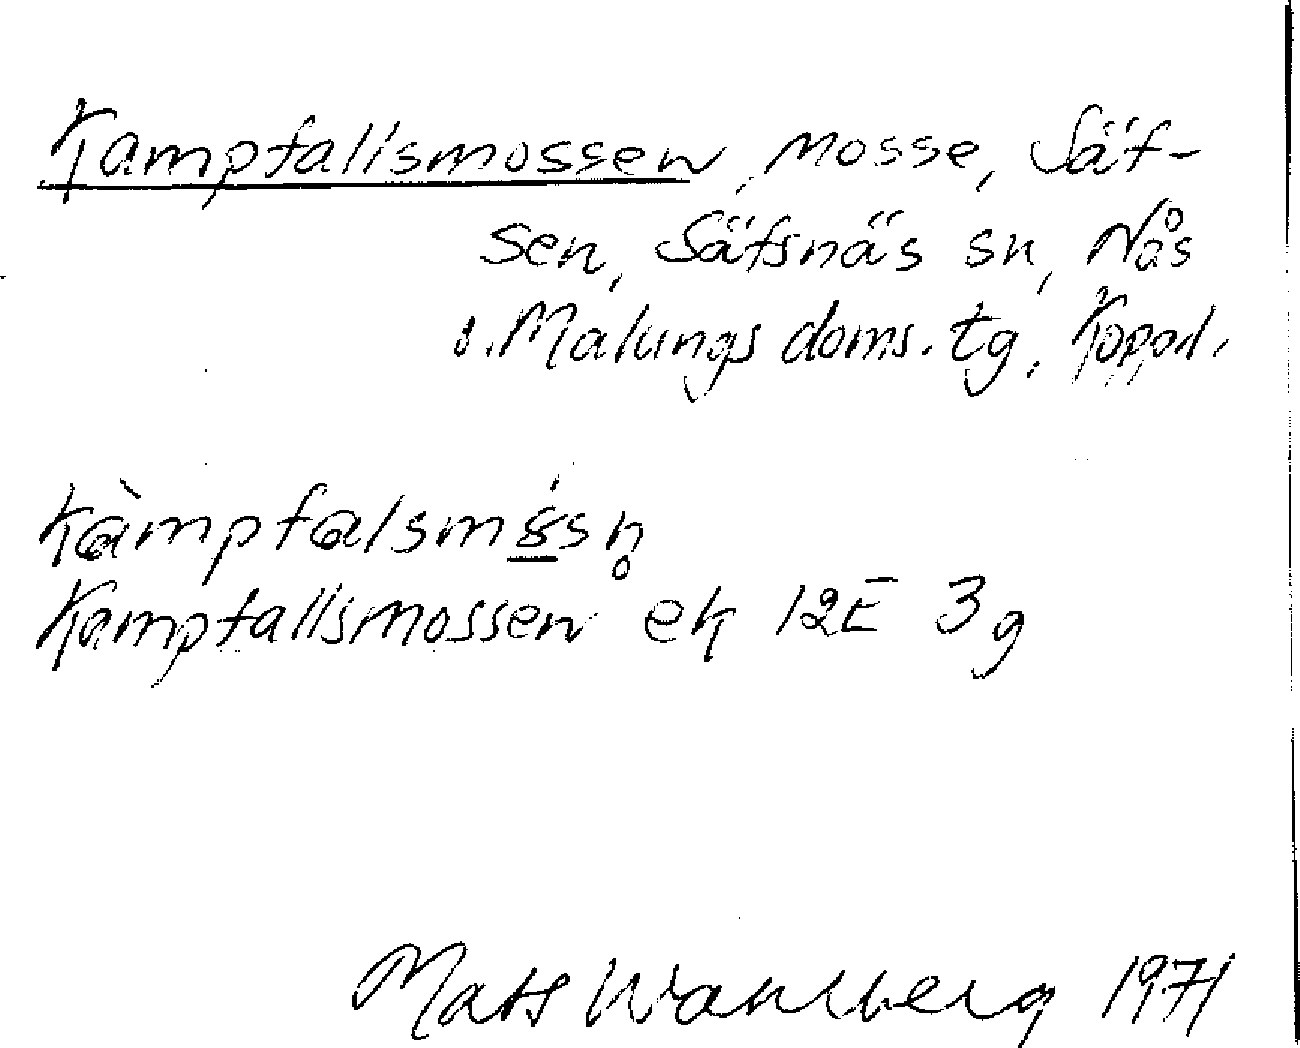 Kampfallsmossen, Mosse, Säf-
sen, Säfsnäs sn, Nås
o. Malungs doms. tg, Koppd.
kàmpfalsmósn̥
Kampfallsmossen ek 12E 3g
Mats Wahlberg 1971